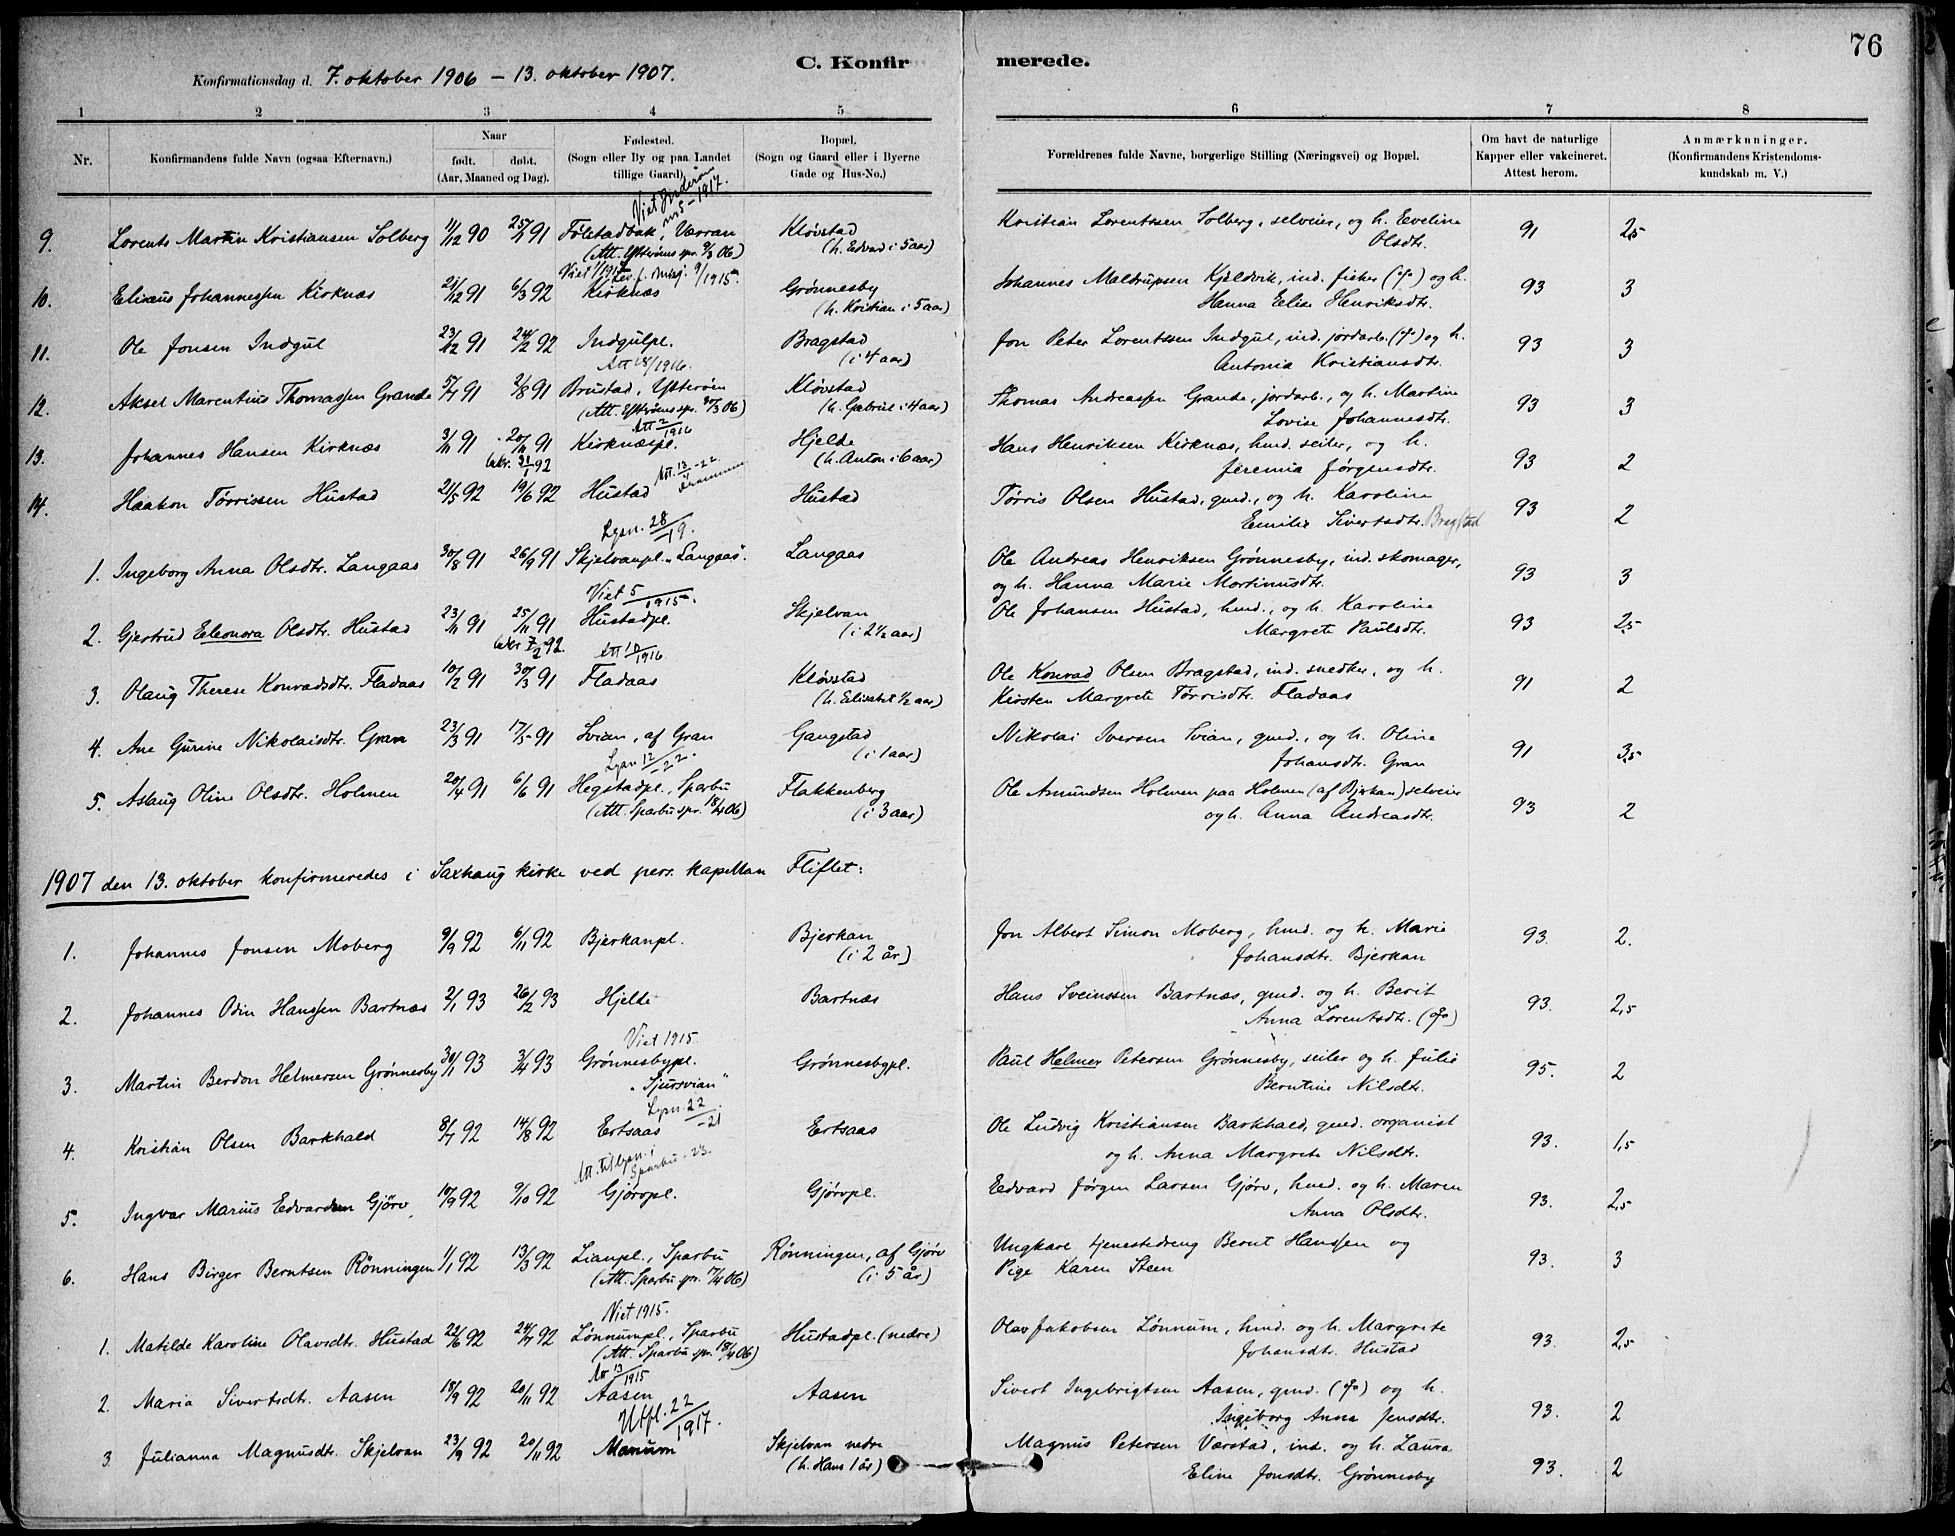 76
C. Konfirmerede.
Konfirmationsdag d. 7. oktober 1906 – 13. oktober 1907.
1 2 3 4 5 6 7 8
Nr. Konfirmandens fulde Navn (ogsaa Efternavn.) Naar født. døbt. (Aar, Maaned og Dag). Fødested. (Sogn eller By og paa Landet tillige Gaard). Bopæl. (Sogn og Gaard eller i Byerne Gade og Hus-No.) Forældrenes fulde Navne, borgerlige Stilling (Næringsvei) og Bopæl. Om havt de naturlige Kapper eller vakcineret. Attest herom. Anmærkninger. (Konfirmandens Kristendomskundskab m. V.)
Viet Inderøen 1917.
9. Lorents Martin Kristiansen Solberg 11/12 90 25/1 91 Følstadbak, Værran Kløvstad Kristian Lorentssen Solberg, selveier, og h. Eveline 91 2,5
(Att. Ytterøens spr. 9/3 06) (h. Edvard i 5 aar) Olsdtr.
10. Elisæus Johannessen Kirknæs 21/12 91 6/3 92 Kirknæs Grønnesby Johannes Maldrupsen Kjeldvik, ind. fisker (%) og h. 93 3
(h. Kristian i 5 aar) Hanna Elise Henriksdtr.
11. Ole Jonsen Indgul 23/12 91 24/2 92 Indgulpl. Bragstad Jon Peter Lorentssen Indgul, ind. jordarb. (%) og h. 93 3
(i 4 aar) Antonia Kristiansdtr.
12. Aksel Marentius Thomassen Grande 5/7 91 2/8 91 Brustad, Ytterøen Kløvstad Thomas Andreassen Grande, jordarb., og h. Martine 93 3
(Att. Ytterøens spr. 30/3 06) (h. Gabriel i 4 aar) Lovise Johannesdtr.
Att 2/1916
13. Johannes Hansen Kirknæs 3/11 91 20/11 91 Kirknæspl. Hjelde Hans Henriksen Kirknæs, husd. seiler, og h. 93 2
bekr. 31/1 92 (h. Anton i 6 aar) Jeremia Jørgensdtr.
14. Haakon Tørrissen Hustad 21/5 92 19/6 92 Hustad Hustad Tørris Olsen Hustad, gmd., og h. Karoline 93 2
Emilie Sivertsdtr. Bragstad
Lysn. 28/19.
1. Ingeborg Anna Olsdtr. Langaas 30/8 91 26/9 91 Skjelvanpl. „Langaas“. Langaas Ole Andreas Henriksen Grønnesby, ind. skomager, 93 3
og h. Hanna Marie Mortinusdtr.
Viet 5/1915.
2. Gjertrud Eleonora Olsdtr. Hustad 23/11 91 25/11 91 Hustadpl. Skjelvan Ole Johansen Hustad, husd., og h. Karoline 93 2,5
bekr 7/2 92. (i 2½ aar) Margrete Paulsdtr.
Att 10/1916.
3. Olaug Therese Konradsdtr. Fladaas 10/2 91 30/3 91 Fladaas Kløvstad Ole Konrad Olsen Bragstad, ind. snedker, og h. 91 2
(h. Elisabet ½ aar) Kirsten Margrete Tørrisdtr. Fladaas
4. Ane Gurine Nikolaisdtr. Gran 23/3 91 17/5 91 Svian, af Gran Gangstad Nikolai Iversen Svian, gmd., og h. Oline 91 3,5
(i 1 aar) Johansdtr. Gran
Lysn 12/-22.
5. Aslaug Oline Olsdtr. Holmen 20/4 91 6/6 91 Hegstadpl., Sparbu Flakkenberg Ole Amundsen Holmen paa Holmen (af Bjerkan) selveier 93 2
(Att. Sparbu spr. 18/4 06) (i 3 aar) og h. Anna Andreasdtr.
1907 den 13. oktober konfirmeredes i Saxhaug kirke ved pers. kapellan Fliflet:
1. Johannes Jonsen Moberg 9/9 92 6/11 92 Bjerkanpl. Bjerkan Jon Albert Simon Moberg, husd. og h. Marie 93. 2.
(i 2 år) Johansdtr. Bjerkan
2. Johannes Odin Hanssen Bartnæs 2/1 93 26/2 93 Hjelde Bartnæs Hans Sveinssen Bartnæs, gmd. og h. Berit 93. 2,5
Anna Lorentsdtr. (%)
Viet 1915.
3. Martin Berdon Helmersen Grønnesby 30/1 93 3/4 93 Grønnesbypl. Grønnesbypl. Paul Helmer Petersen Grønnesby, seiler og h. Julie 95. 2
„Sjursvian“ Berntine Nilsdtr.
Lysn. 22/-21
4. Kristian Olsen Barkhald 8/7 92 14/8 92 Ertsaas Ertsaas Ole Ludvig Kristiansen Barkhald, gmd. organist 93. 1,5
og h. Anna Margrete Nilsdtr.
Att. til lysn. i Sparbu -23.
5. Ingvar Marius Edvardsen Gjörv 10/9 92 9/10 92 Gjørvpl. Gjørvpl. Edvard Jørgen Larsen Gjørv, husd. og h. Maren 93. 2,5
Anna Olsdtr.
6. Hans Birger Berntsen Rönningen 1/1 92 13/3 92 Lianpl., Sparbu Rønningen, af Gjørv Ungkarl tjenestedreng Bernt Hanssen og 93. 3
(Att. Sparbu spr. 17/4 06) (i 5 år) Pige Karen Steen
Viet 1915.
1. Matilde Karoline Olavsdtr. Hustad 22/6 92 24/7 92 Lønnumpl., Sparbu Hustadpl. (nedre) Olav Jakobsen Lønnum, husd. og h. Margrete 93. 2,5
(Att. Sparbu spr. 18/4 06) Johansdtr. Hustad
13/1915
2. Maria Sivertsdtr. Aasen 18/9 92 20/11 92 Aasen Aasen Sivert Ingebrigtsen Aasen, gmd. (%) og h. 93. 2
Ingeborg Anna Jensdtr.
Utfl. 22/1917.
3. Julianna Magnusdtr. Skjelvan 23/9 92 20/11 92 Manum Skjelvan nedre Magnus Petersen Værstad, ind. og h. Laura 93. 2
(h. Hans 1 år) Eline Jonsdtr. Grønnesby